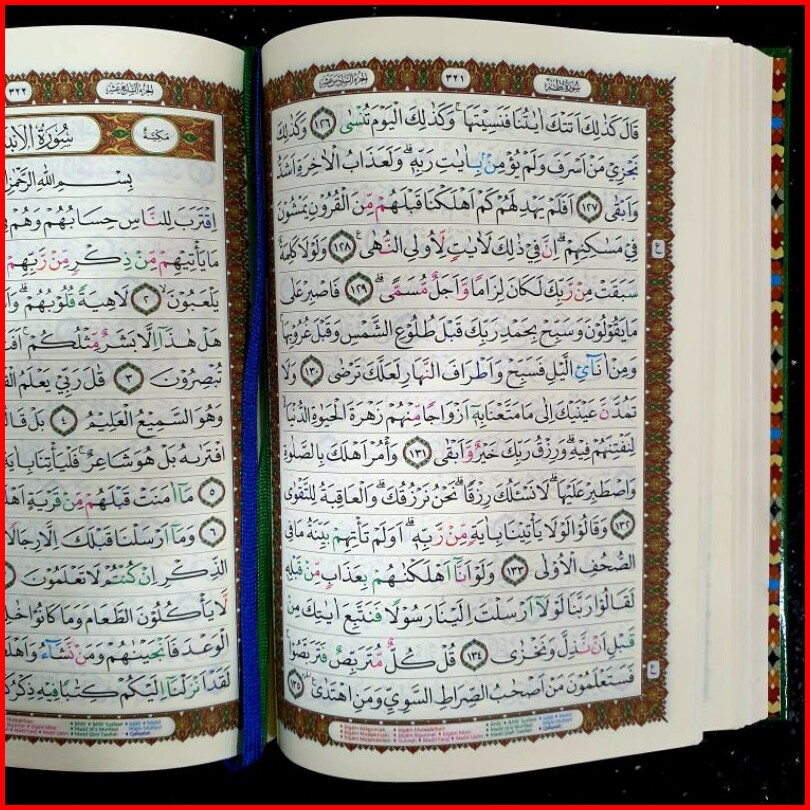 سُورَةُ طٰهٰ
٣٢١
الجزء السادس عشر
قَالَ كَذٰلِكَ اَتَتْكَ اٰيٰتُنَا فَنَسِيْتَهَا ۚ وَكَذٰلِكَ الْيَوْمَ تُنْسٰى ﴿١٢٦﴾ وَكَذٰلِكَ
نَجْزِيْ مَنْ اَسْرَفَ وَلَمْ يُؤْمِنْۢ بِاٰيٰتِ رَبِّهٖ ۗ وَلَعَذَابُ الْاٰخِرَةِ اَشَدُّ
وَاَبْقٰى ﴿١٢٧﴾ اَفَلَمْ يَهْدِ لَهُمْ كَمْ اَهْلَكْنَا قَبْلَهُمْ مِّنَ الْقُرُوْنِ يَمْشُوْنَ
فِيْ مَسٰكِنِهِمْ ۗ اِنَّ فِيْ ذٰلِكَ لَاٰيٰتٍ لِّاُولِى النُّهٰى ۚ ﴿١٢٨﴾ وَلَوْلَا كَلِمَةٌ
سَبَقَتْ مِنْ رَّبِّكَ لَكَانَ لِزَامًا وَّاَجَلٌ مُّسَمًّى ۗ ﴿١٢٩﴾ فَاصْبِرْ عَلٰى
مَا يَقُوْلُوْنَ وَسَبِّحْ بِحَمْدِ رَبِّكَ قَبْلَ طُلُوْعِ الشَّمْسِ وَقَبْلَ غُرُوْبِهَا ۚ
وَمِنْ اٰنَاۤئِ الَّيْلِ فَسَبِّحْ وَاَطْرَافَ النَّهَارِ لَعَلَّكَ تَرْضٰى ﴿١٣٠﴾ وَلَا
تَمُدَّنَّ عَيْنَيْكَ اِلٰى مَا مَتَّعْنَا بِهٖٓ اَزْوَاجًا مِّنْهُمْ زَهْرَةَ الْحَيٰوةِ الدُّنْيَا ەۙ
لِنَفْتِنَهُمْ فِيْهِ ۗ وَرِزْقُ رَبِّكَ خَيْرٌ وَّاَبْقٰى ﴿١٣١﴾ وَأْمُرْ اَهْلَكَ بِالصَّلٰوةِ
وَاصْطَبِرْ عَلَيْهَا ۗ لَا نَسْـَٔلُكَ رِزْقًا ۗ نَحْنُ نَرْزُقُكَ ۗ وَالْعَاقِبَةُ لِلتَّقْوٰى
﴿١٣٢﴾ وَقَالُوْا لَوْلَا يَأْتِيْنَا بِاٰيَةٍ مِّنْ رَّبِّهٖ ۗ اَوَلَمْ تَأْتِهِمْ بَيِّنَةُ مَا فِى
الصُّحُفِ الْاُوْلٰى ﴿١٣٣﴾ وَلَوْ اَنَّآ اَهْلَكْنٰهُمْ بِعَذَابٍ مِّنْ قَبْلِهٖ
لَقَالُوْا رَبَّنَا لَوْلَآ اَرْسَلْتَ اِلَيْنَا رَسُوْلًا فَنَتَّبِعَ اٰيٰتِكَ مِنْ
قَبْلِ اَنْ نَّذِلَّ وَنَخْزٰى ﴿١٣٤﴾ قُلْ كُلٌّ مُّتَرَبِّصٌ فَتَرَبَّصُوْا ۚ
فَسَتَعْلَمُوْنَ مَنْ اَصْحٰبُ الصِّرَاطِ السَّوِيِّ وَمَنِ اهْتَدٰى ۔ ﴿١٣٥﴾
ع
ع
الجزء السابع عشر
٣٢٢
مَكِّيَّةٌ
سُوْرَةُ
بِسْمِ اللّٰهِ الرَّحْمٰنِ
اِقْتَرَبَ لِلنَّاسِ حِسَابُهُمْ وَهُمْ
مَا يَأْتِيْهِمْ مِّنْ ذِكْرٍ مِّنْ رَّبِّهِمْ
يَلْعَبُوْنَ ۙ ﴿٢﴾ لَاهِيَةً قُلُوْبُهُمْ ۗ
هَلْ هٰذَآ اِلَّا بَشَرٌ مِّثْلُكُمْ ۚ
تُبْصِرُوْنَ ﴿٣﴾ قٰلَ رَبِّيْ يَعْلَمُ
وَهُوَ السَّمِيْعُ الْعَلِيْمُ ﴿٤﴾ بَلْ
افْتَرٰىهُ بَلْ هُوَ شَاعِرٌ ۚ فَلْيَأْتِنَا
﴿٥﴾ مَآ اٰمَنَتْ قَبْلَهُمْ مِّنْ قَرْيَةٍ
﴿٦﴾ وَمَآ اَرْسَلْنَا قَبْلَكَ اِلَّا رِجَالًا
الذِّكْرِ اِنْ كُنْتُمْ لَا تَعْلَمُوْنَ
لَّا يَأْكُلُوْنَ الطَّعَامَ وَمَا كَانُوْا
الْوَعْدَ فَاَنْجَيْنٰهُمْ وَمَنْ نَّشَاۤءُ
لَقَدْ اَنْزَلْنَآ اِلَيْكُمْ كِتٰبًا فِيْهِ